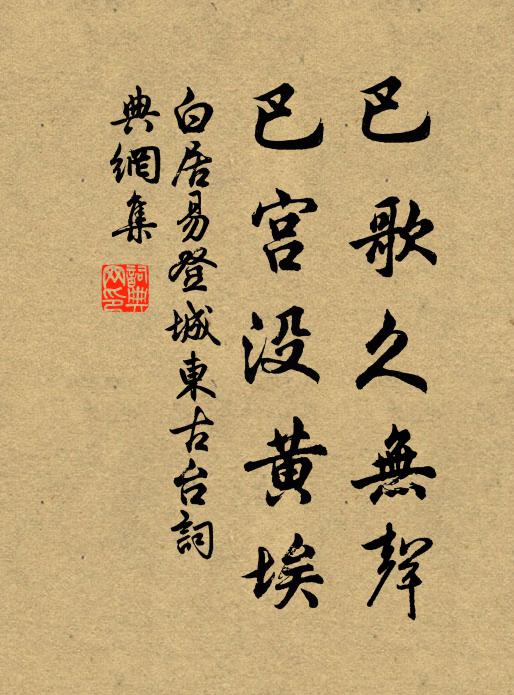 巴歌久無聲
巴宮没黄埃
白居易登城東古台詞
典網集
詞典
网印